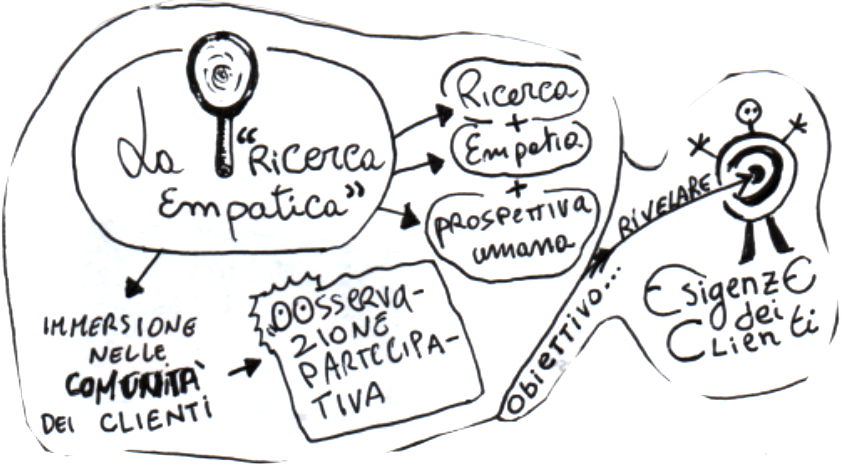 La "Ricerca
Empatica"
Ricerca
+
Empatia
+
PROSPETTIVA
umana
IMMERSIONE
NELLE
COMUNITÀ
DEI CLIENTI
OOSSERVA-
ZIONE
PARTECIPA-
TIVA
OBIETTIVO...
RIVELARE
EsigenzE
dei
Clienti